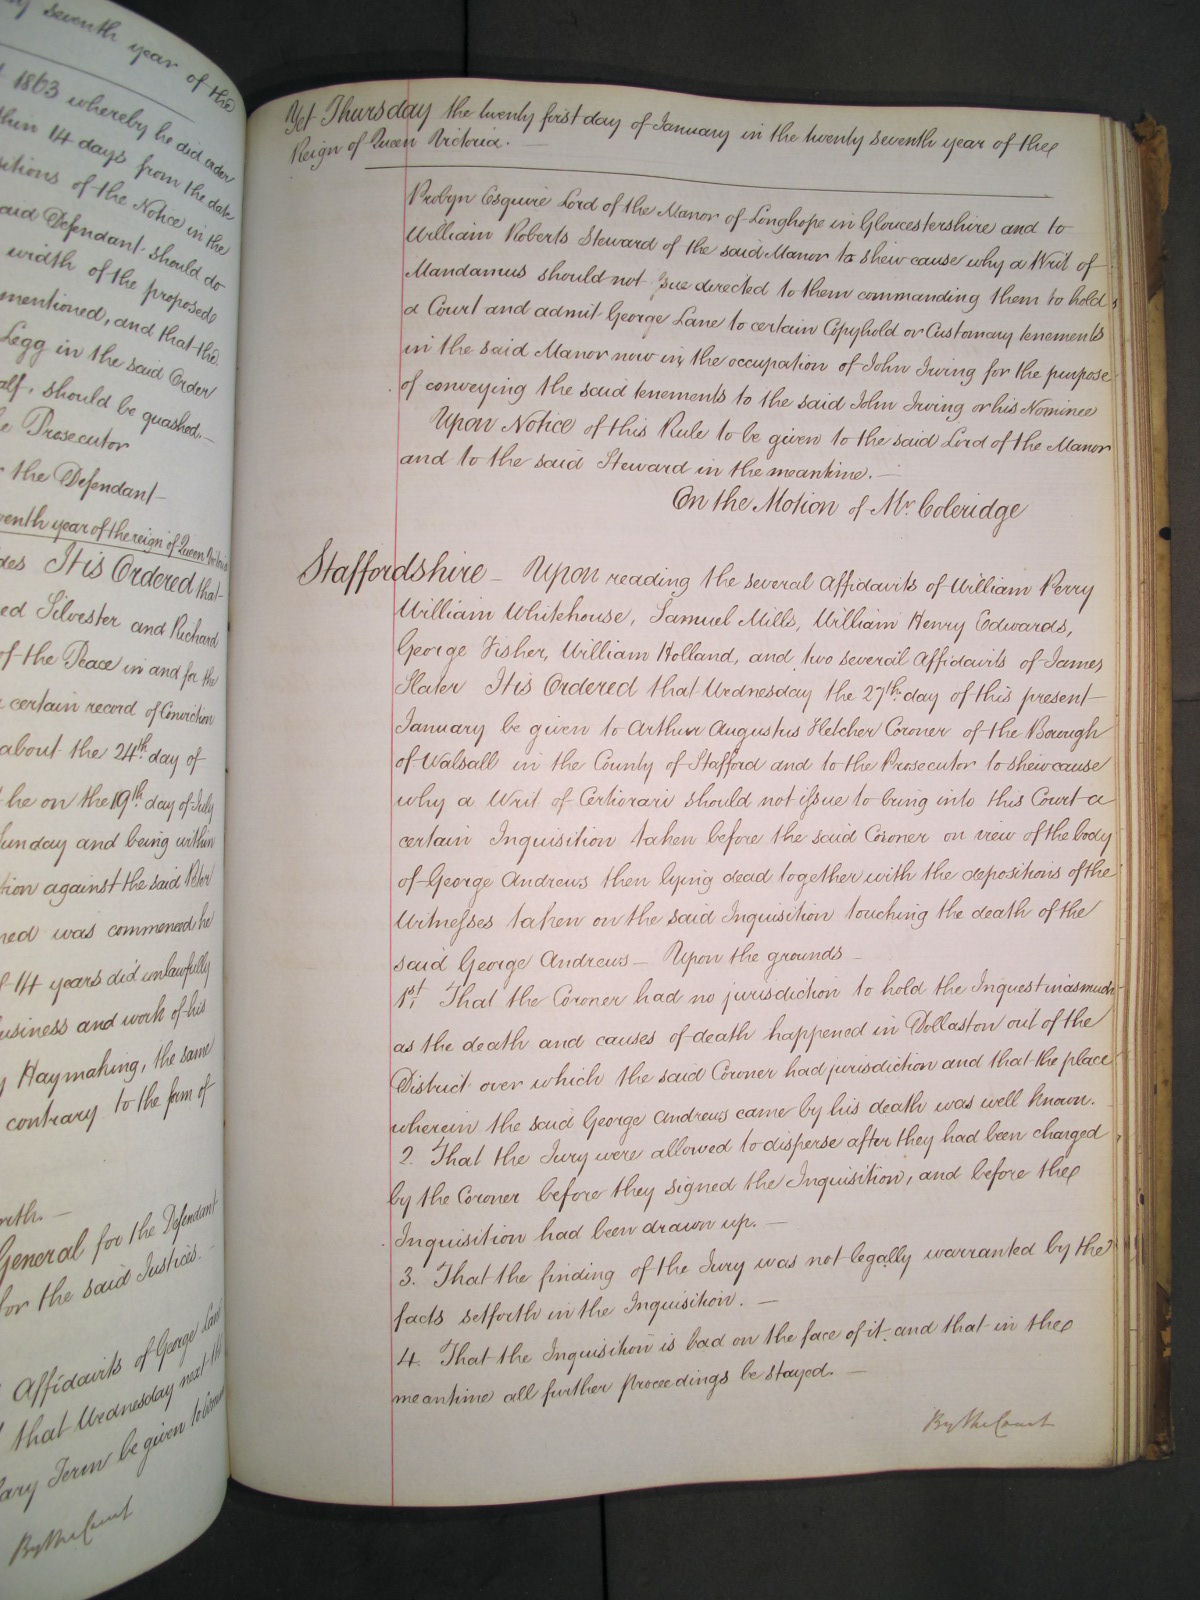 seventh year of the
1863 whereby he did order
within 14 days from the date
of the Notice in the
said Defendant should do
width of the proposed
mentioned, and that the
Legg in the said Order
half, should be quashed.
Prosecutor
the Defendant
seventh year of the reign of Queen Victoria
It is Ordered that
Silvester and Richard
of the Peace in and for the
certain record of Conviction
about the 24th day of
he on the 19th day of July
Sunday and being within
against the said Peter
was commenced he
14 years did unlawfully
business and work of his
Haymaking, the same
contrary to the form of
General for the Defendant
for the said Justices.
Affidavits of George Lane
that Wednesday next the
Term be given to
By the Court
Yet Thursday the twenty first day of January in the twenty seventh year of the
Reign of Queen Victoria.
Probyn Esquire Lord of the Manor of Longhope in Gloucestershire and to
William Roberts Steward of the said Manor to shew cause why a Writ of
Mandamus should not issue directed to them commanding them to hold
a Court and admit George Lane to certain Copyhold or Customary tenements
in the said Manor now in the occupation of John Irving for the purpose
of conveying the said tenements to the said John Irving or his Nominee
Upon Notice of this Rule to be given to the said Lord of the Manor
and to the said Steward in the meantime.
On the Motion of Mr. Coleridge
Staffordshire – Upon reading the several Affidavits of William Perry
William Whitehouse, Samuel Mills, William Henry Edwards,
George Fisher, William Holland, and two several Affidavits of James
Slater It is Ordered that Wednesday the 27th day of this present
January be given to Arthur Augustus Fletcher Coroner of the Borough
of Walsall in the County of Stafford and to the Prosecutor to shew cause
why a Writ of Certiorari should not issue to bring into this Court a
certain Inquisition taken before the said Coroner on view of the body
of George Andrews then lying dead together with the depositions of the
Witnesses taken on the said Inquisition touching the death of the
said George Andrews – Upon the grounds –
1st. That the Coroner had no jurisdiction to hold the Inquest inasmuch
as the death and causes of death happened in Dollaston out of the
District over which the said Coroner had jurisdiction and that the place
wherein the said George Andrews came by his death was well known.
2. That the Jury were allowed to disperse after they had been charged
by the Coroner before they signed the Inquisition, and before the
Inquisition had been drawn up. –
3. That the finding of the Jury was not legally warranted by the
facts setforth in the Inquisition. –
4. That the Inquisition is bad on the face of it and that in the
meantime all further proceedings be stayed. –
By the Court